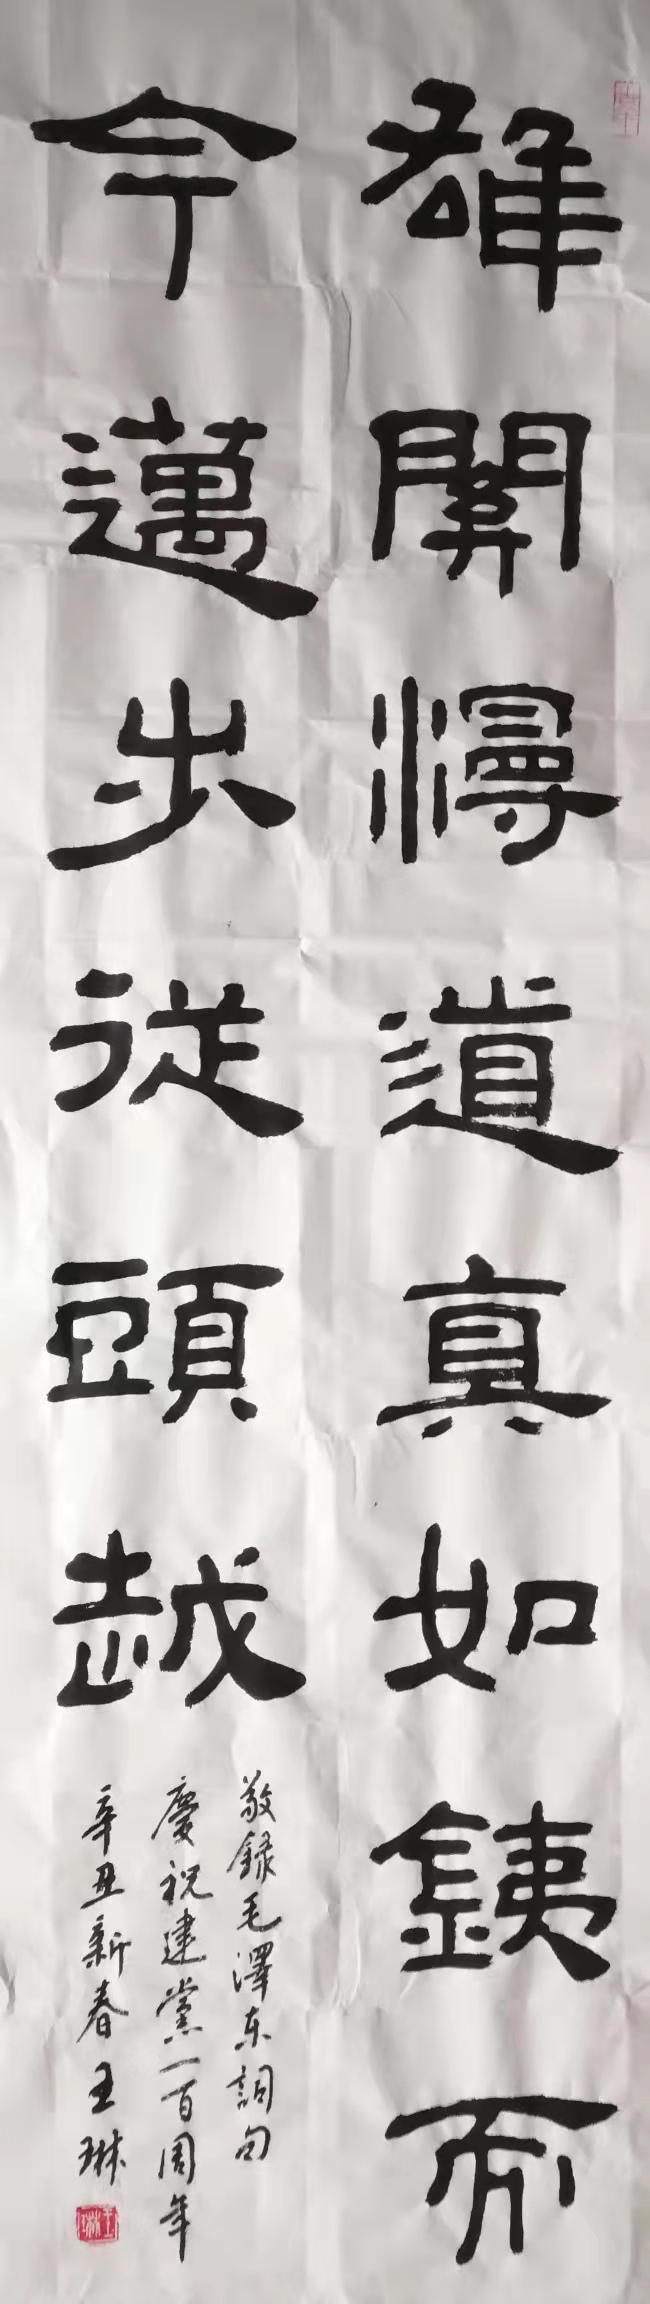 雄關漫道真如鐵而
今邁步從頭越
敬録毛澤东詞句
慶祝建黨一百周年
辛丑新春王琳
王琳